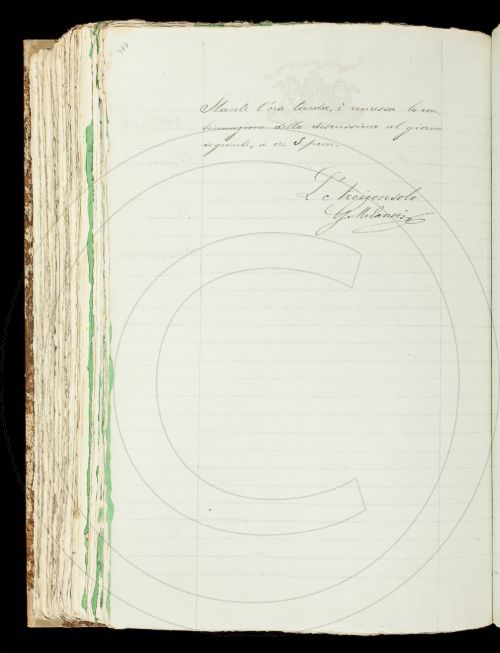 Stante l'ora tarda, è rimessa la con
tinuazione della discussione al giorno
seguente, a ore 3 pom.
G. Milanesi